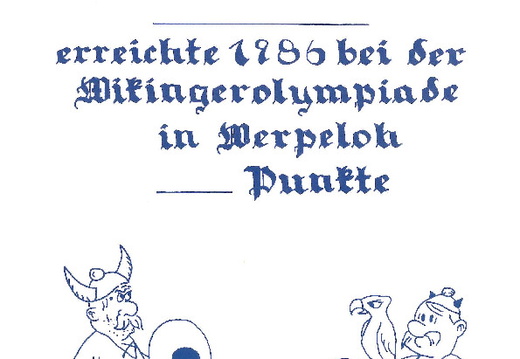 erreichte 1986 bei der
Wikingerolympiade
in Werpeloh
Punkte